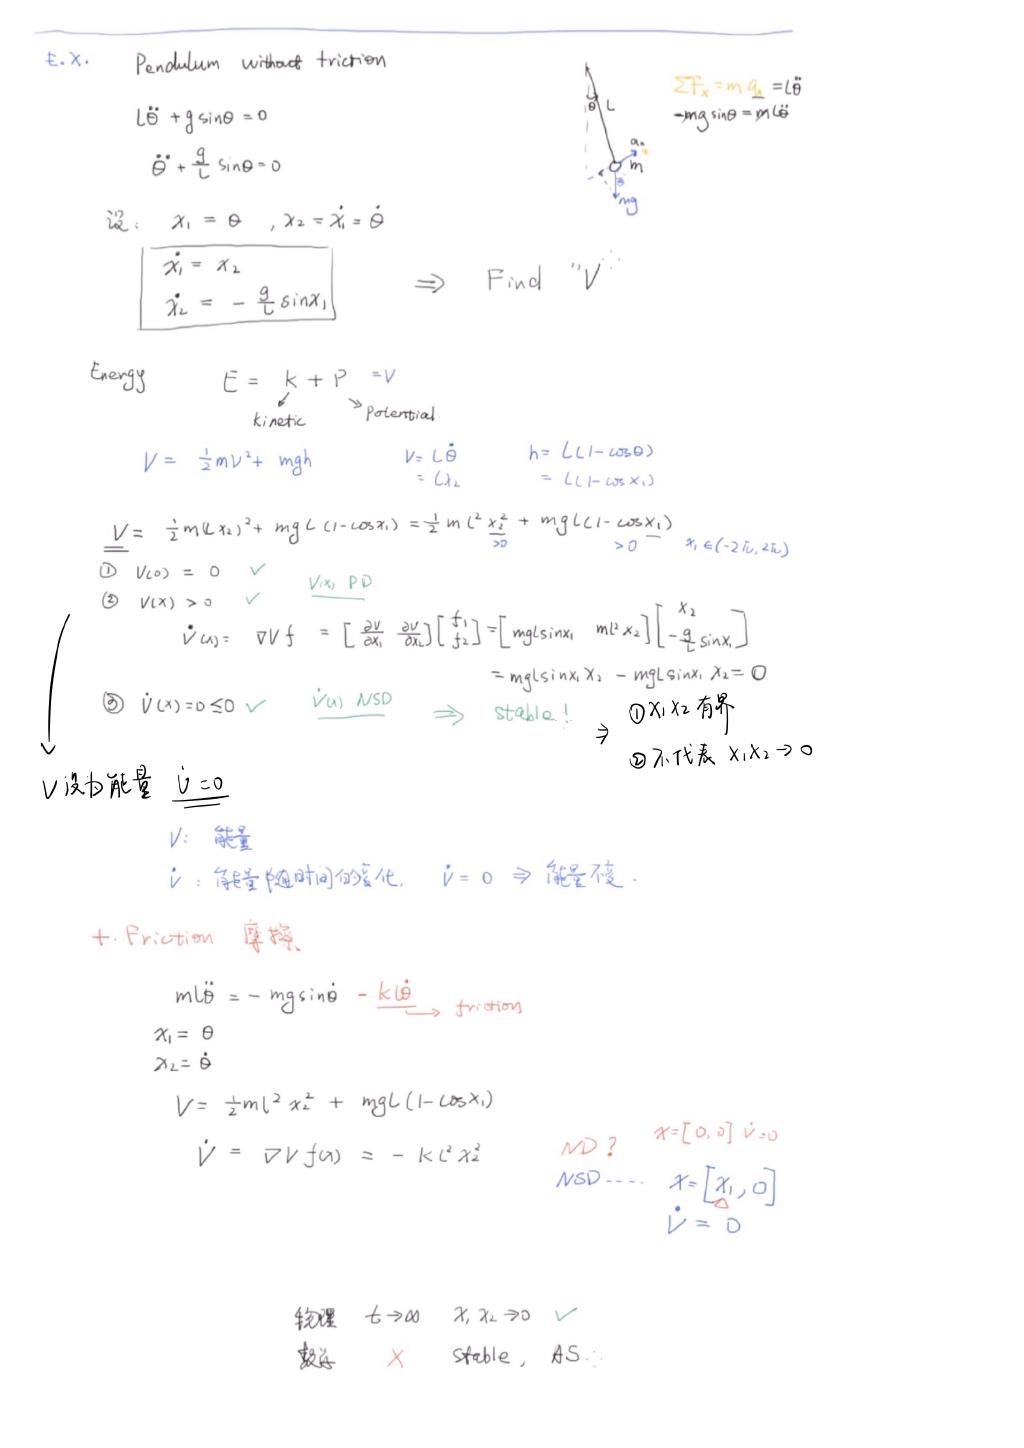 E.X. Pendulum without friction
Lθ̈ + g sinθ = 0
θ̈ + g/L sinθ = 0
ΣFx = m ax = Lθ̈
-mg sinθ = mLθ̈
θ L
m
mg
设: x₁ = θ , x₂ = ẋ₁ = θ̇
ẋ₁ = x₂
ẋ₂ = - g/L sinx₁
⇒ Find "V"
Energy E = K + P = V
Kinetic Potential
V = ½mv² + mgh v = Lθ̇ h = L(1-cosθ)
= Lx₂ = L(1-cosx₁)
V = ½m(Lx₂)² + mgL(1-cosx₁) = ½mL²x₂² + mgL(1-cosx₁)
>0 >0 x₁∈(-2π, 2π)
① V(0) = 0 ✓ V(x) PD
② V(x) > 0 ✓
V̇(x) = ∇V f = [∂V/∂x₁ ∂V/∂x₂][f₁ f₂] = [mgLsinx₁ mL²x₂][x₂ -g/L sinx₁]
= mgLsinx₁ x₂ - mgLsinx₁ x₂ = 0
③ V̇(x)=0≤0 ✓ V̇(x) NSD ⇒ stable! ⇒ ① x₁x₂ 有界
② 不代表 x₁x₂→0
V设为能量 V̇=0
V: 能量
V̇: 能量随时间的变化. V̇ = 0 ⇒ 能量不变.
+. Friction 摩擦
mLθ̈ = - mg sinθ̇ - kLθ̇ → friction
x₁ = θ
x₂ = θ̇
V = ½mL²x₂² + mgL(1-cosx₁)
V̇ = ∇V f(x) = - kL²x₂²
ND? x=[0,0] V̇=0
NSD---- x=[x₁,0]
V̇ = 0
物理 t→∞ x₁x₂→0 ✓
数学 X stable, AS